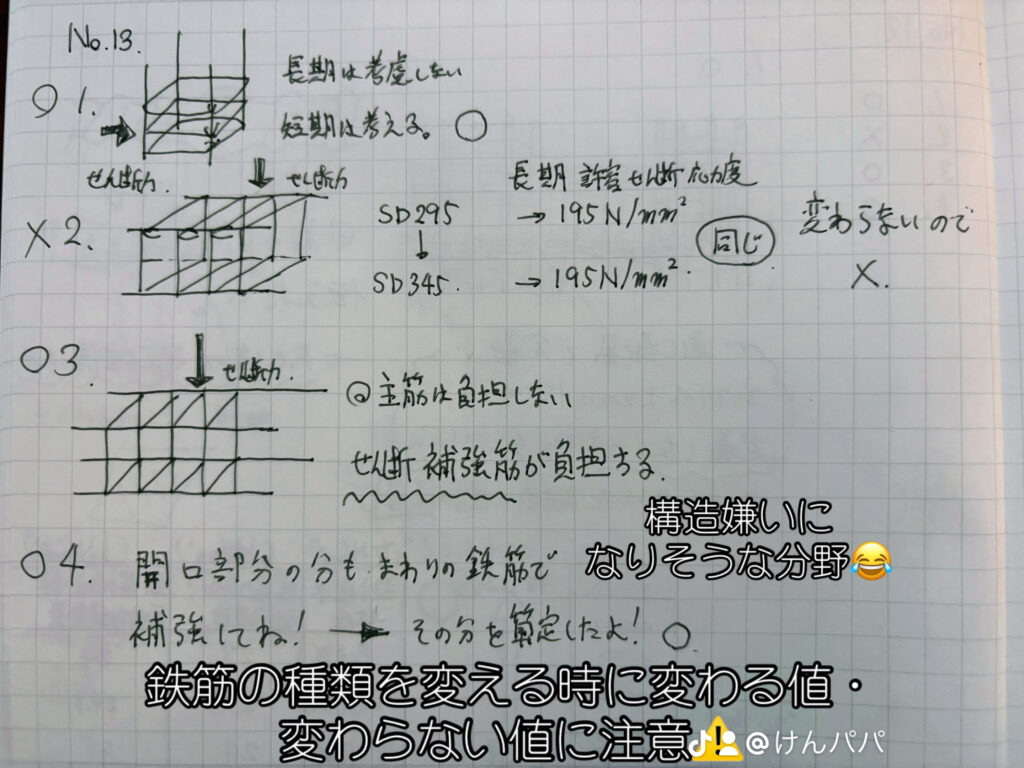 No.13.
○ 1.
長期は考慮しない
短期は考える。 ○
せん断力.
× 2.
せん断力
長期 許容せん断応力度
SD295 → 195N/mm²
↓
SD345. → 195N/mm².
同じ
変わらないので
×.
○ 3.
せん断力.
◎主筋は負担しない
せん断補強筋が負担する.
構造嫌いに
なりそうな分野😂
○ 4. 開口部分の分もまわりの鉄筋で
補強してね! → その分を算定したよ! ○
鉄筋の種類を変える時に変わる値・
変わらない値に注意⚠️
@けんパパ